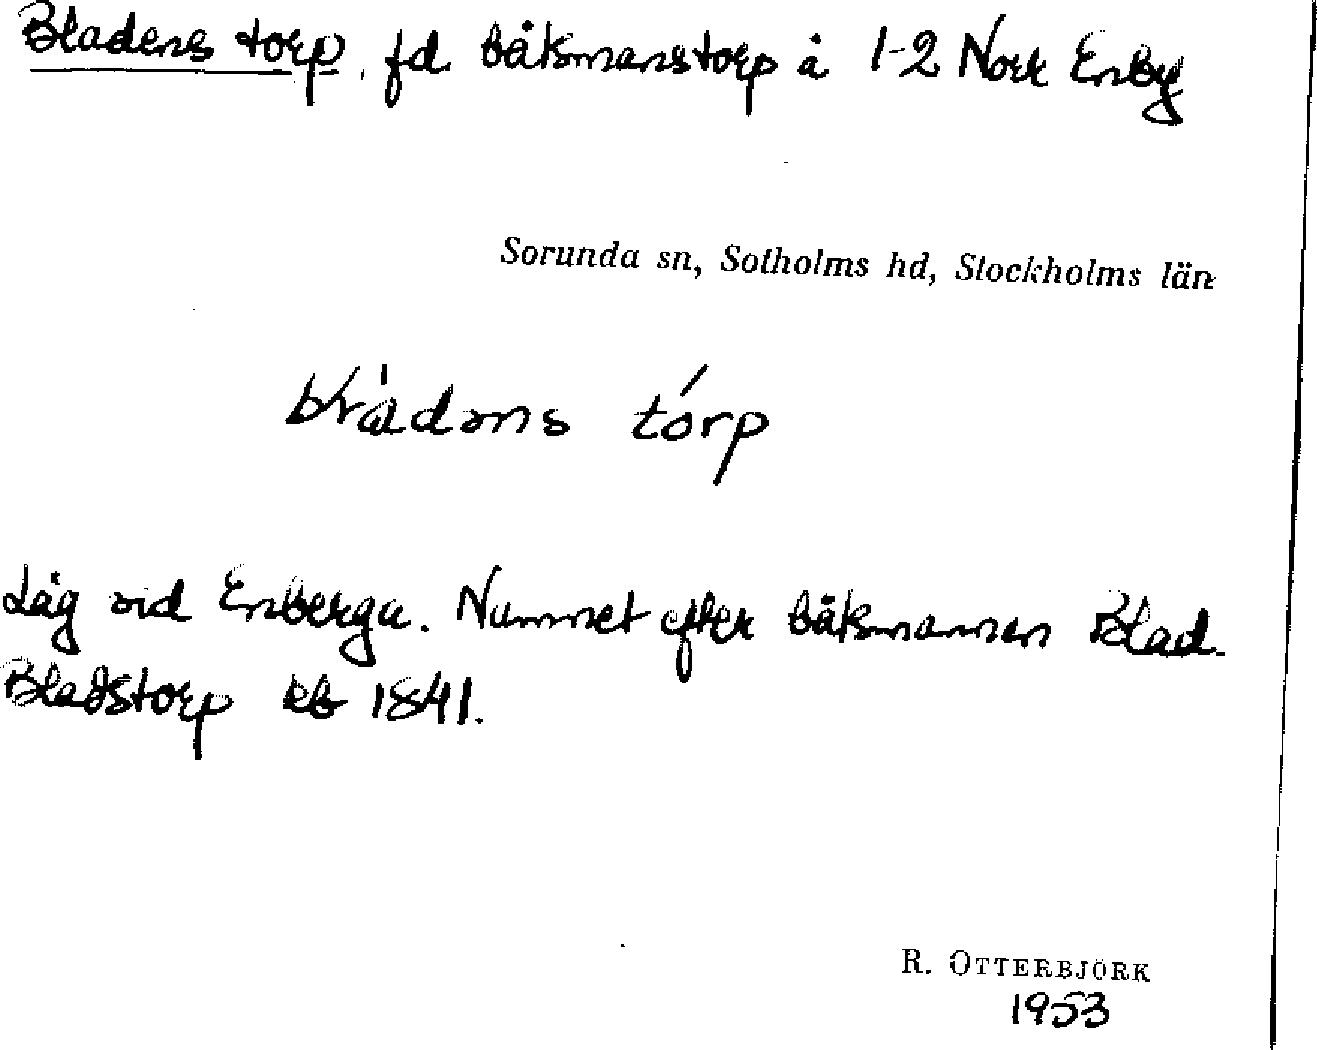 Bladens torp, fd båtsmanstorp å 1-2 Norr Enby
Sorunda sn, Sotholms hd, Stockholms län
tórp
Låg vid Enberga. Namnet efter båtsmannen Blad.
Bladstorp kb 1841.
R. OTTERBJÖRK
1953